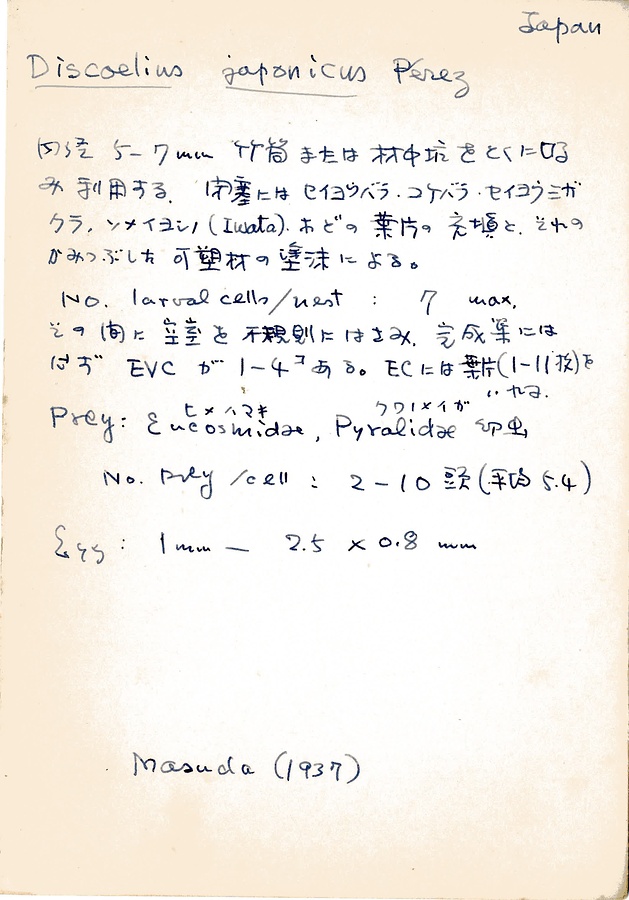 Japan
Discoelius japonicus Pérez
内径 5-7mm 竹筒または材中坑をとくにこの
み利用する. 閉塞にはセイヨウバラ・コケバラ・セイヨウミザ
クラ, ソメイヨシノ(Iwata)・などの葉片の充填と, それの
かみつぶした可塑材の塗沫による。
No. larval cells/nest : 7 max,
その間に空室を不規則にはさみ, 完成巣には
EVC が 1-4コある。ECには葉片(1-11枚)を
いれる.
ヒメハマキ クワノメイガ
Prey: Eucosmidae, Pyralidae 幼虫
No. prey /cell : 2-10 頭(平均 5.4)
Egg : 1mm — 2.5 × 0.8 mm
Masuda (1937)